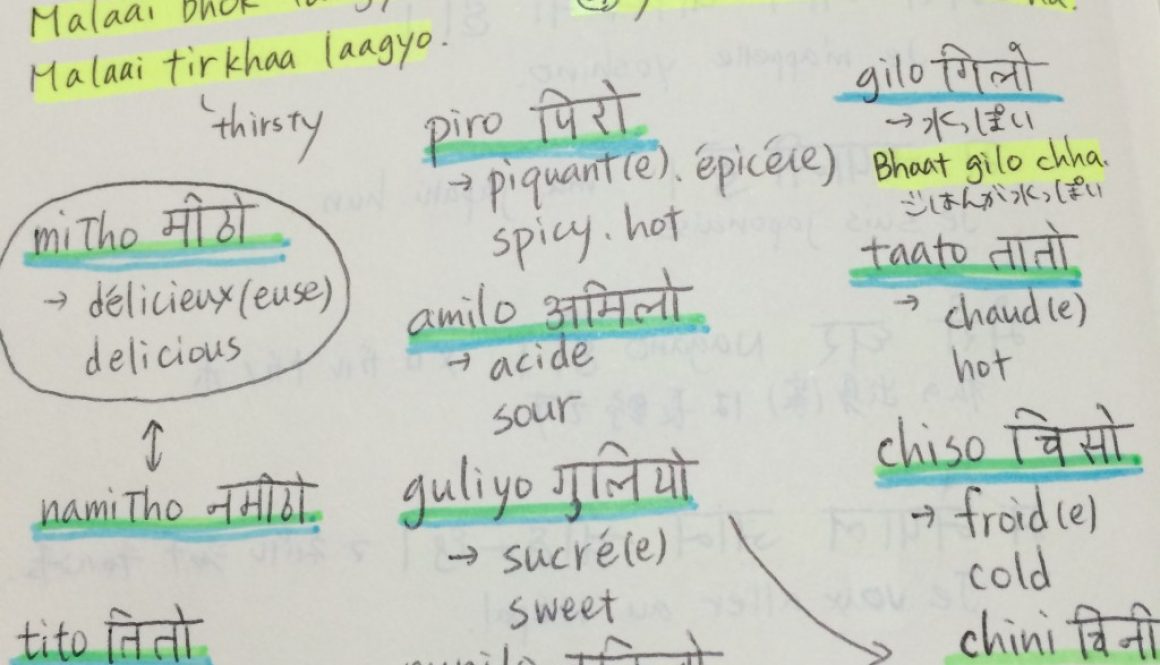 Malaai bhok
Malaai tirkhaa laagyo.
thirsty
miTho मीठो
→ délicieux(euse)
delicious
↕
namiTho नमीठो
tito तितो
piro पिरो
→ piquant(e). épicé(e)
spicy. hot
amilo अमिलो
→ acide
sour
guliyo गुलियो
→ sucré(e)
sweet
gilo गिलो
→ 水っぽい
Bhaat gilo chha.
ごはんが水っぽい
taato तातो
→ chaud(e)
hot
chiso चिसो
→ froid(e)
cold
chini चिनी